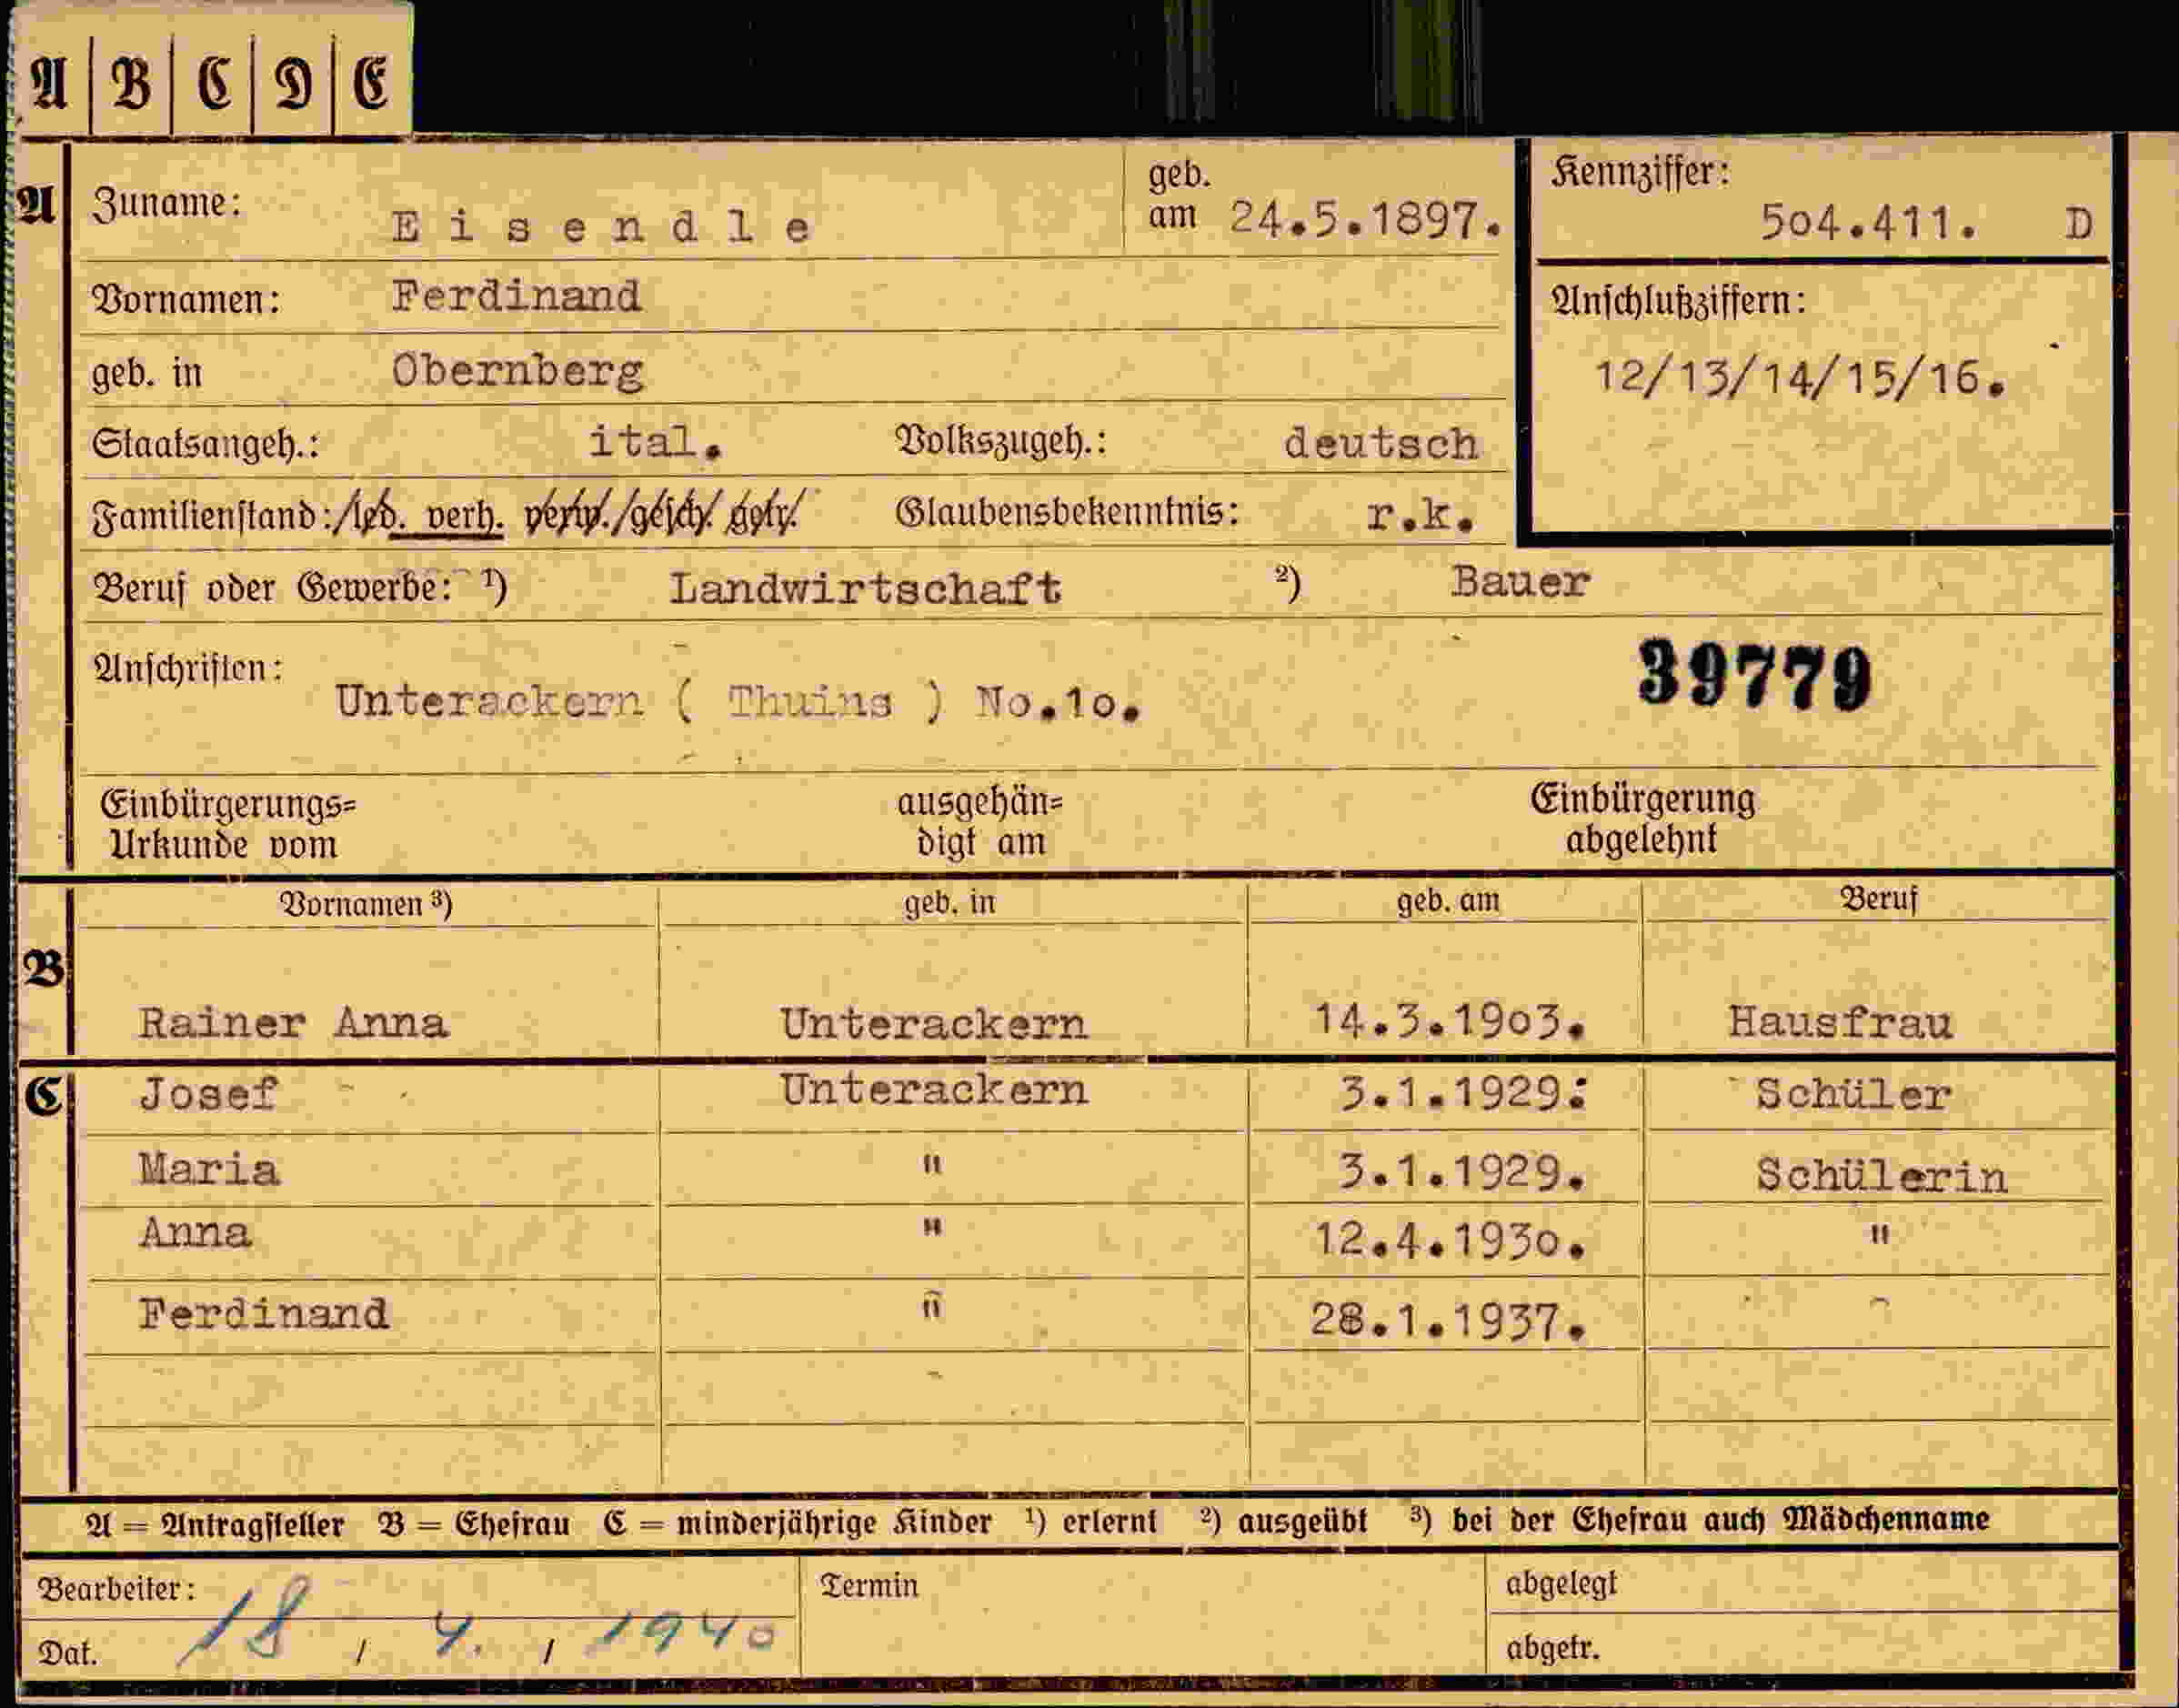 A B C D E
A Zuname: Eisendle geb. am 24.5.1897. Kennziffer: 504.411. D
Vornamen: Ferdinand Anschlußziffern:
geb. in Obernberg 12/13/14/15/16.
Staatsangeh.: ital. Volkszugeh.: deutsch
Familienstand: led. verh. verw. gesch. getr. Glaubensbekenntnis: r.k.
Beruf oder Gewerbe: 1) Landwirtschaft 2) Bauer
Anschriften: 39779
Unterackern ( Thuins ) No.1o.
Einbürgerungs= ausgehän= Einbürgerung
Urkunde vom digt am abgelehnt
Vornamen 3) geb. in geb. am Beruf
B
Rainer Anna Unterackern 14.3.19o3. Hausfrau
C Josef Unterackern 3.1.1929: Schüler
Maria " 3.1.1929. Schülerin
Anna " 12.4.193o. "
Ferdinand " 28.1.1937.
A = Antragsteller B = Ehefrau C = minderjährige Kinder 1) erlernt 2) ausgeübt 3) bei der Ehefrau auch Mädchenname
Bearbeiter: Termin abgelegt
Dat. 18 / 4. / 1940 abgetr.